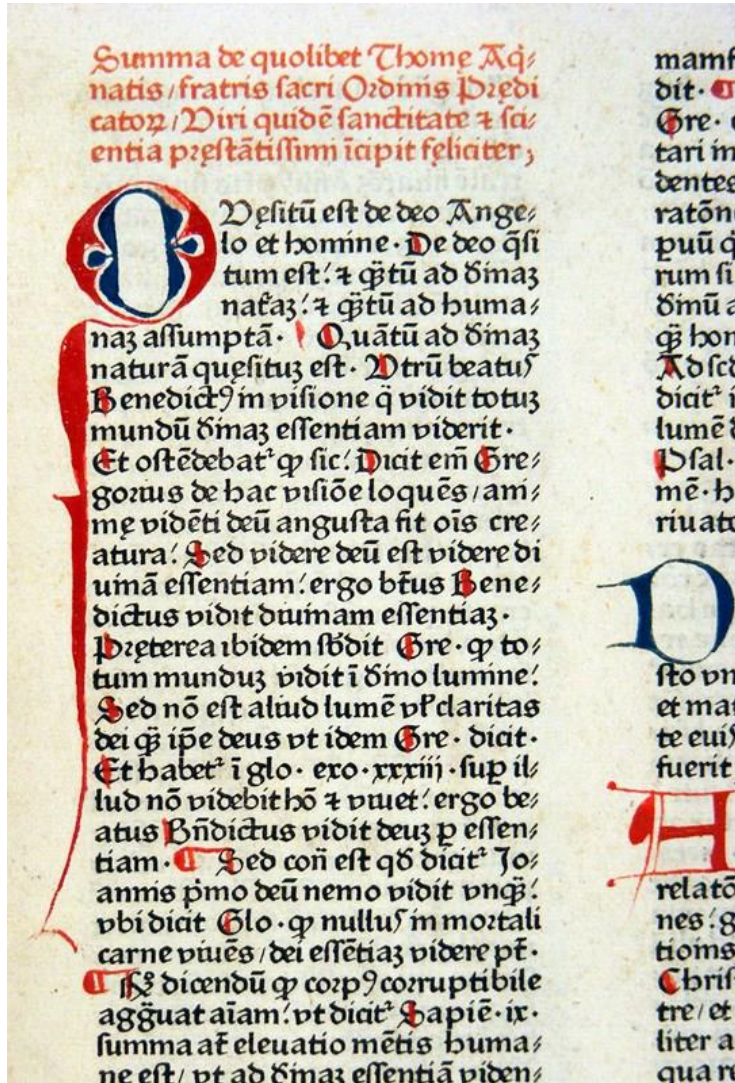 Summa de quolibet Thomę Aq̇⸗
natis/fratris sacri Ordinis Prędi
catoꝝ/Viri quidē sanctitate ⁊ sci⸗
entia pręstātissimi īcipit fęliciter;
QVęsitū est de deo Ange⸗
lo et homine. De deo q̄si
tum est: ⁊ qꝫ̄tū ad diuinaꝫ
naťaꝫ: ⁊ qꝫ̄tū ad huma⸗
naꝫ assumptā. Quātū ad ďinaꝫ
naturā quęsituꝫ est. Vtrū beatus
Benedictꝰ in visione q̄ vidit totuꝫ
mundū ďinaꝫ essentiam viderit.
Et ostēdebatᷣ ꝙ sic: Dicit em̄ Gre⸗
gorius de hac visiōe loquēs/ani⸗
mę vidēti deū angusta fit oīs cre⸗
atura: Sed videre deū est videre di
uinā essentiam: ergo bt̄us Bene⸗
dictus vidit diuinam essentiaꝫ.
Pręterea ibidem sb̄dit Gre. ꝙ to⸗
tum munduꝫ vidit ī ďino lumine:
Sed nō est aliud lumē vꝉ claritas
dei qꝫ̄ ip̄e deus vt idem Gre. dicit.
Et habetᷣ ī glo. exo. xxxiij. suꝑ il⸗
lud nō videbit hō ⁊ viuet: ergo be⸗
atus Bn̄dictus vidit deuꝫ ꝑ essen⸗
tiam. ¶ Sed con̄ est qď dicitᷣ Jo⸗
annis p̄mo deū nemo vidit vnqꝫ̄:
vbi dicit Glo. ꝙ nullus in mortali
carne viuēs/dei essētiaꝫ videre pt̄.
¶ R̄ dicendū ꝙ corpꝰ corruptibile
aggᷓuat aīam: vt dicitᷣ Sapiē. ix.
summa at̄ eleuatio mētis huma⸗
nę est/vt ad ďinaꝫ essentiā viden⸗
dit. ¶
Gre.
tari in
dentes
ratōn
rum si
Ad scd
dicitᷣ
Psal.
D
sto vn
et mat
fuerit
A
relatō
tre/et
liter a
qua re